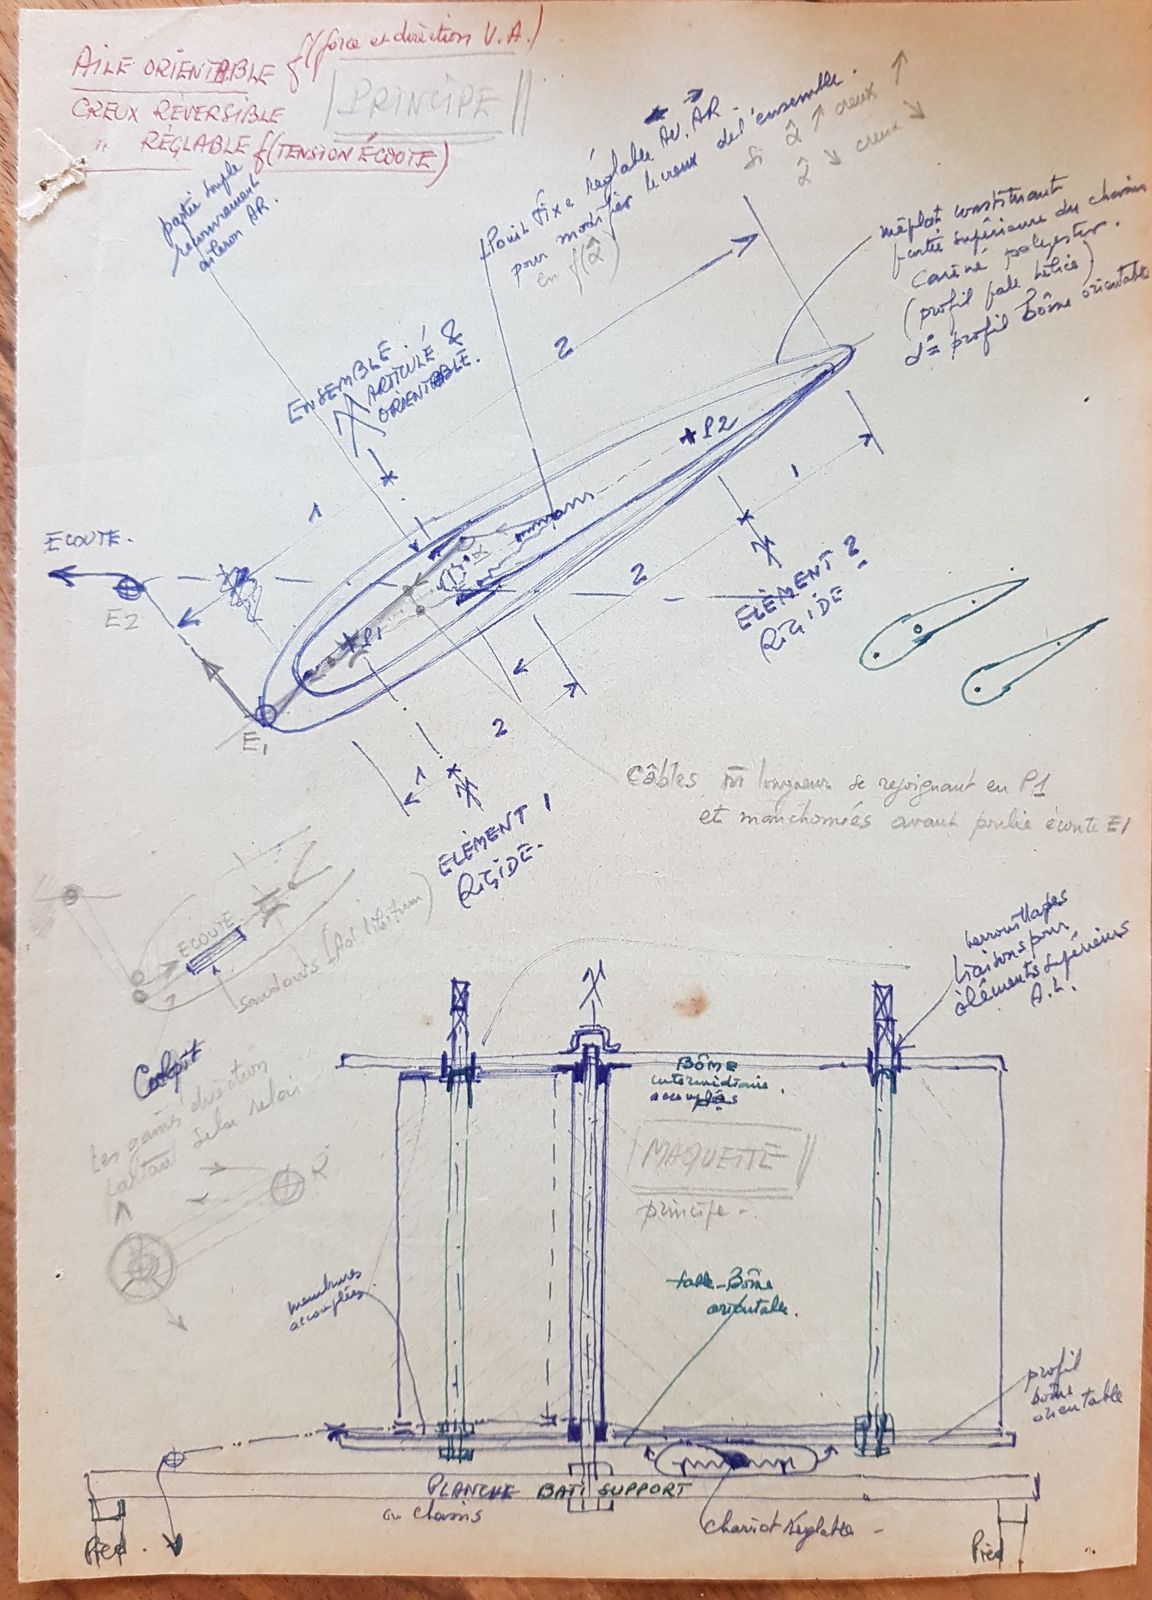 AILE ORIENTABLE f(force et direction V.A.)
CREUX RÉVERSIBLE
" RÉGLABLE f(TENSION ÉCOUTE)
PRINCIPE
partie souple
aileron AR.
Point fixe réglable AV. AR
pour modifier le creux de l'ensemble.
en f(α̂)
Si α̂ ↑ creux ↑
α̂ ↓ creux ↓
méplat constituant
partie supérieure du chassis
caréné polyester.
(profil pale hélice)
d° = profil bôme orientable
ENSEMBLE
ARTICULÉ &
ORIENTABLE.
2
P2
1
1
ECOUTE.
E2
α
2
ELÉMENT 2
RIGIDE
P1
E1
2
1
ELÉMENT 1
RIGIDE.
Câbles longueur se rejoignant en P1
et manchonnés avant poulie écoute E1
ECOUTE
sandows
Cockpit
direction
selon
R
verrouillages
liaisons pour
éléments supérieurs
A.L.
BÔME
intermédiaire
accouplées
MAQUETTE
principe
membrures
accouplées
table-Bôme
orientable.
profil
bôme
orientable
PLANCHE BATI SUPPORT
ou chassis
chariot réglable
Pied.
Pied